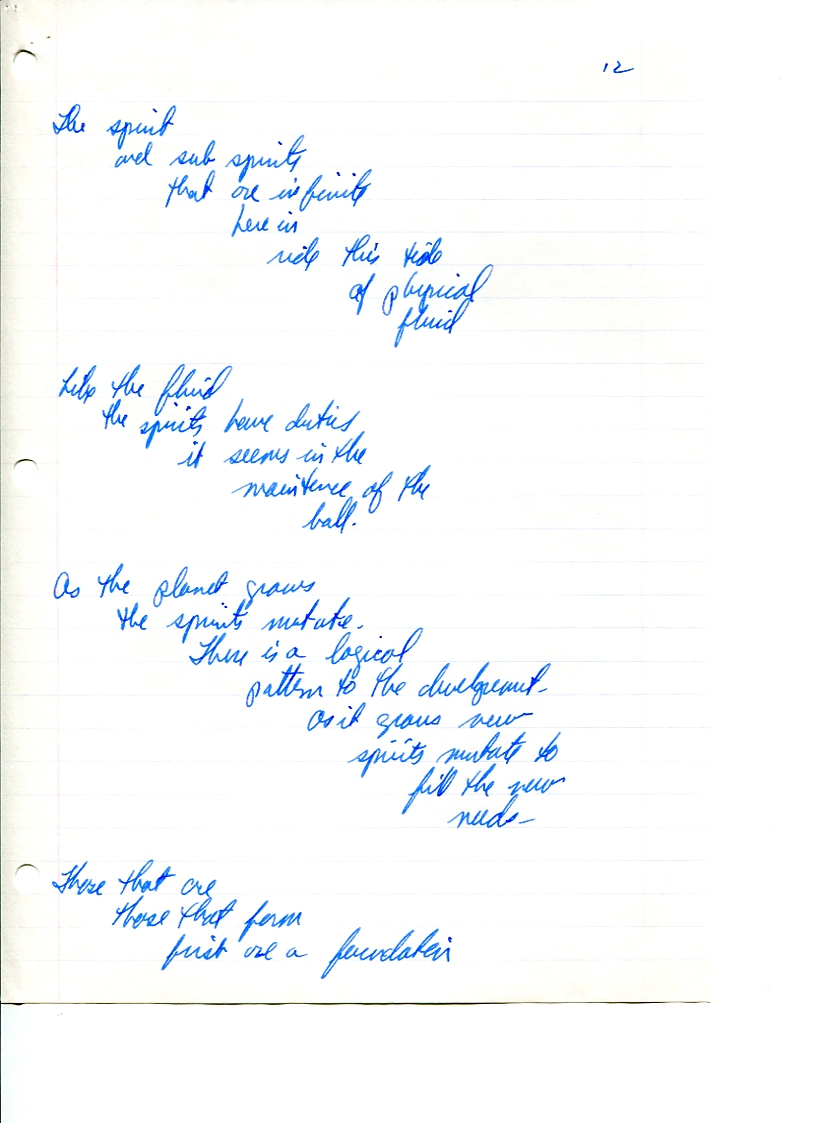 12
The spirit
and sub spirits
that are infinite
here in
ride this tide
of physical
fluid
Like the fluid
the spirits have duties
it seems in the
maintence of the
ball.
As the planet grows
the spirits mutate.
There is a logical
pattern to the development-
as it grows new
spirits mutate to
fill the new
needs-
Those that are
those that form
first are a foundation